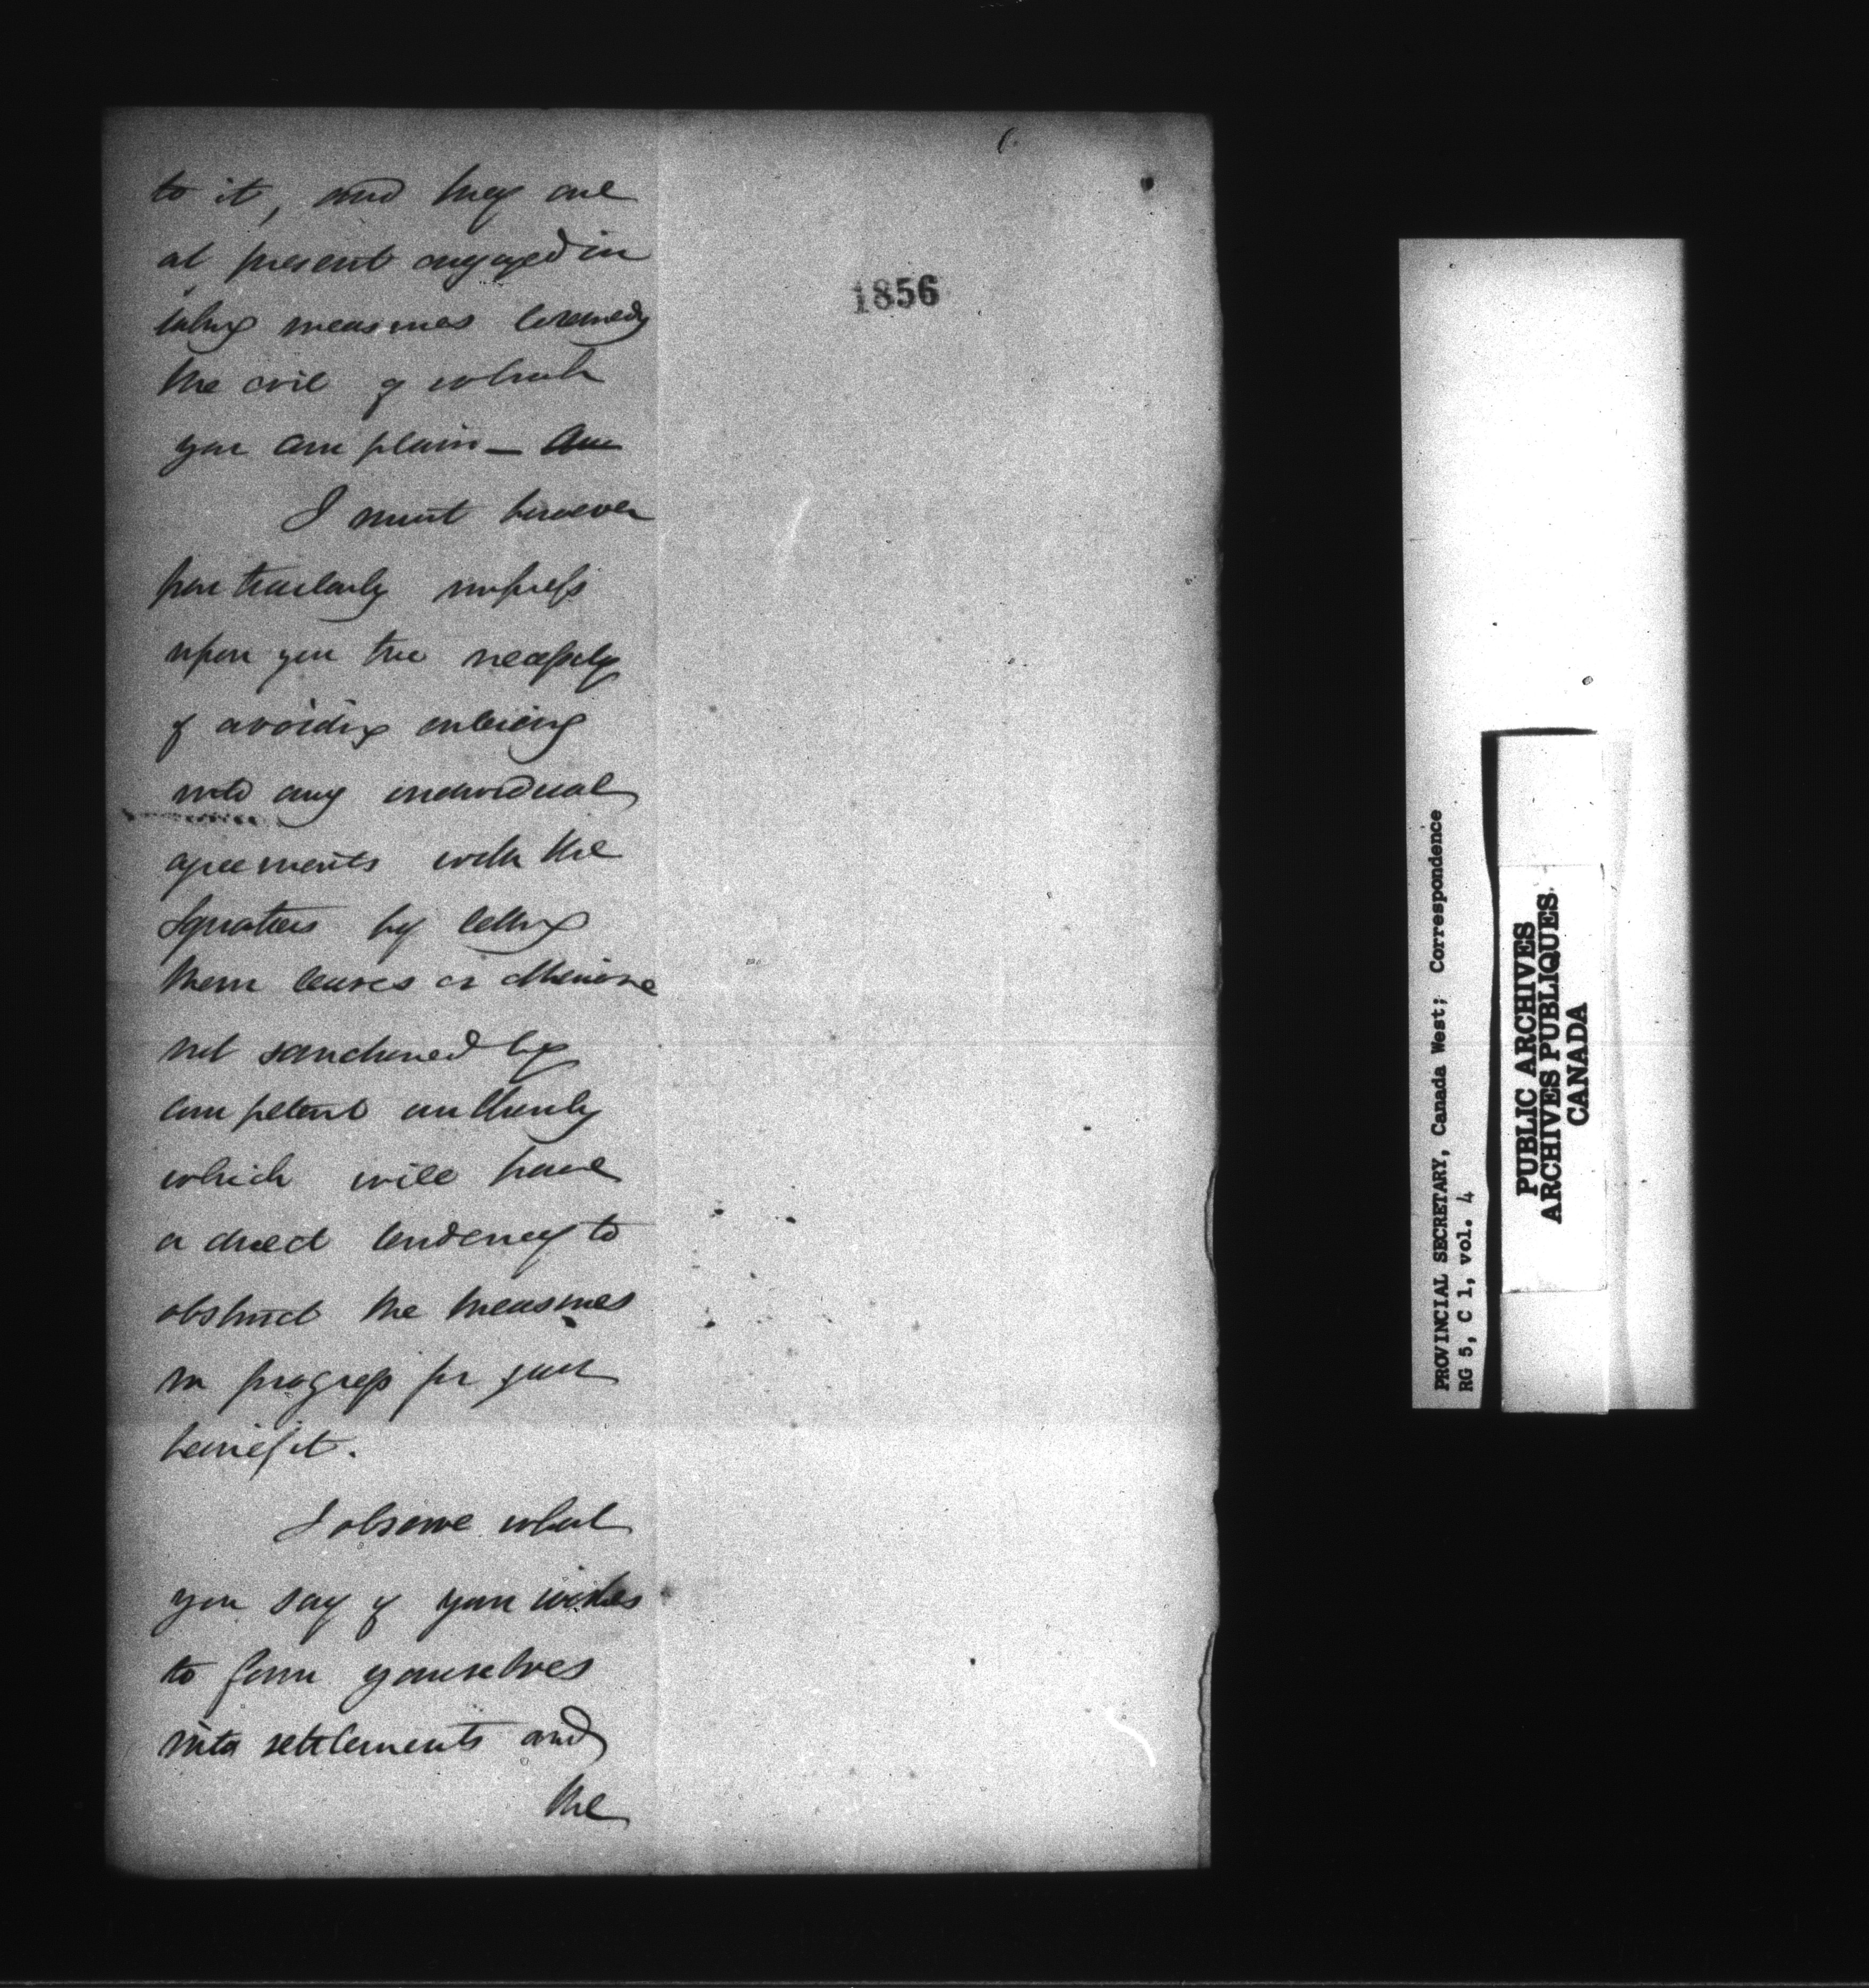 to it, and they are
at present engaged in
taking measures to remedy
the evil of which
you complain —
I must however
particularly impress
upon you the necessity
of avoiding entering
into any individual
agreements with the
Squatters by letting
them leases or otherwise
not sanctioned by
competent authority
which will have
a direct tendency to
obstruct the measures
in progress for your
benefit.
I observe what
you say of your wishes
to form yourselves
into settlements and
the
1856
PROVINCIAL SECRETARY, Canada West; Correspondence
RG 5, C 1, vol. 4
PUBLIC ARCHIVES
ARCHIVES PUBLIQUES
CANADA